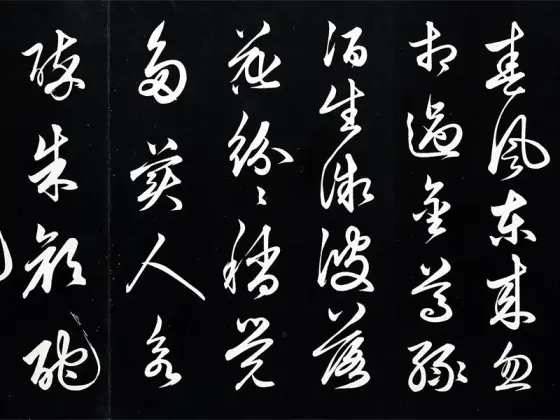 春風東來忽
相過金尊綠
酒生微波落
花紛〻稍覺
多美人欲
醉朱顏酡